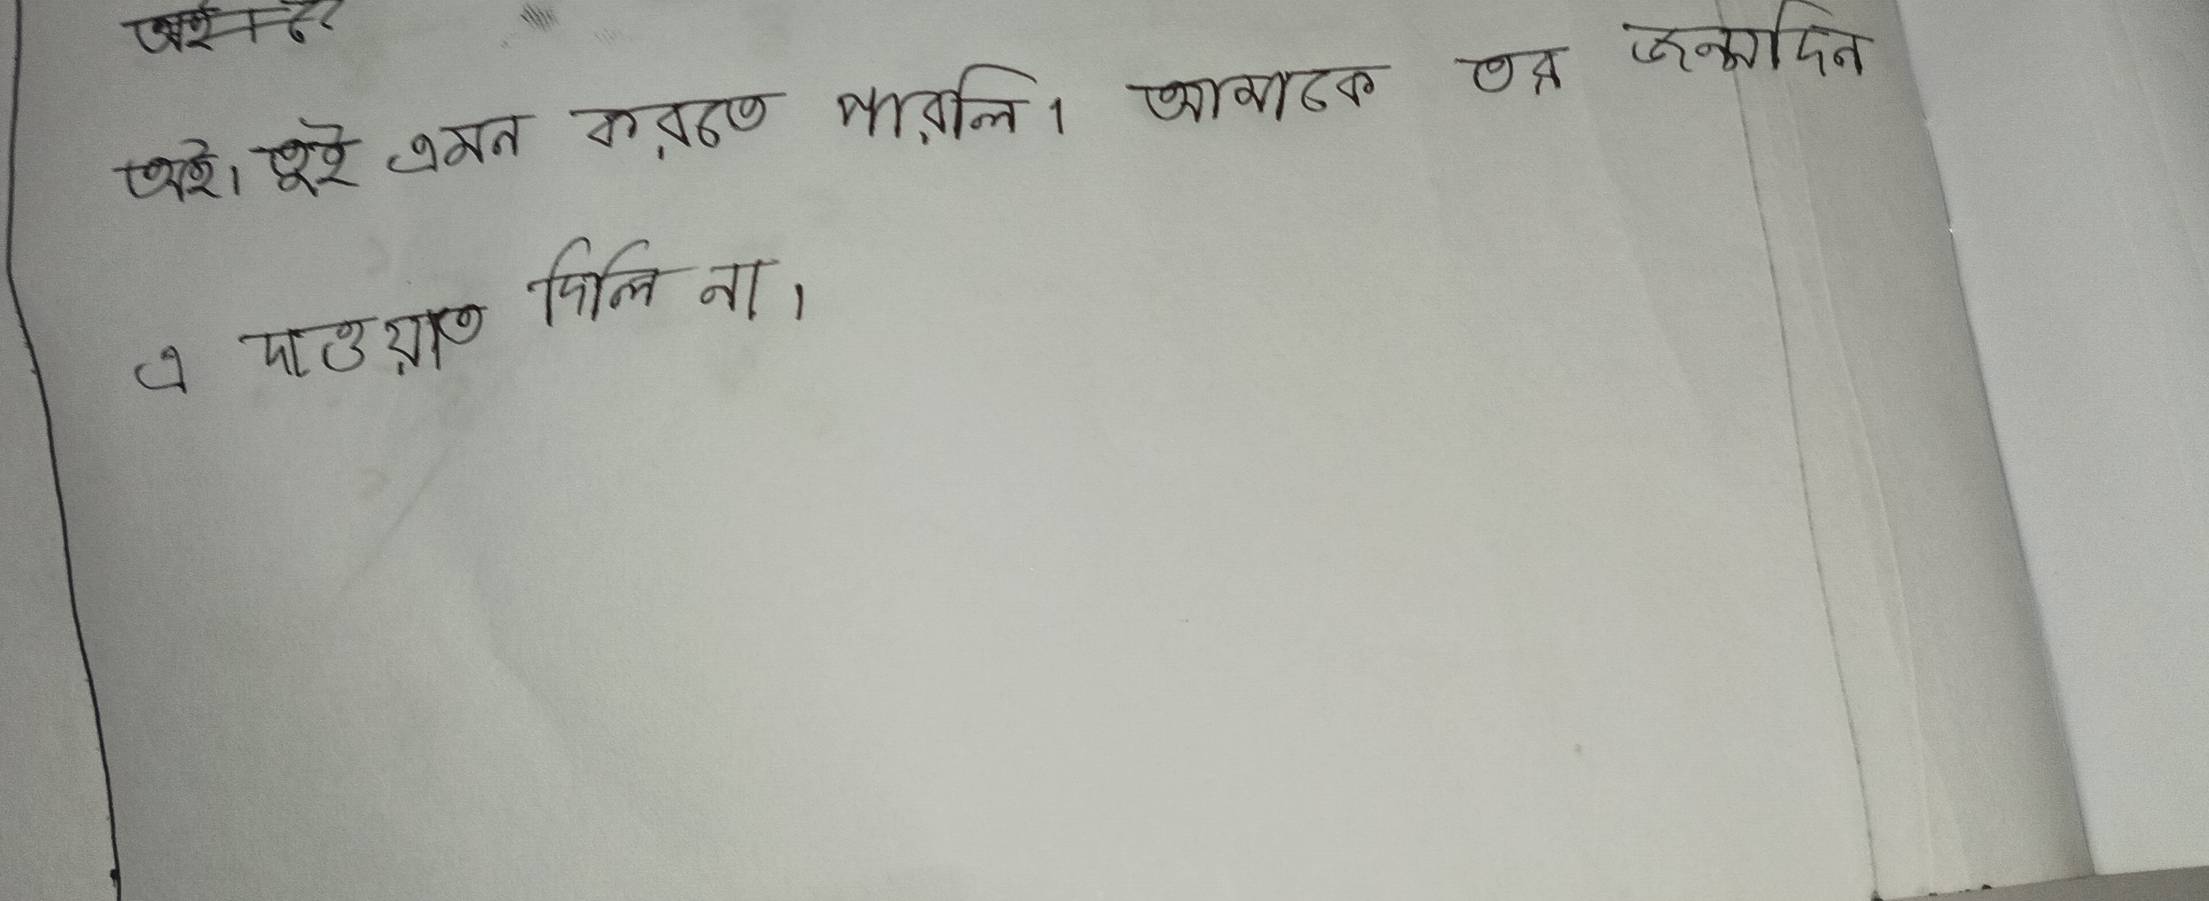 অই। তুই এমন করতে পারলি। আমাকে তর জন্মদিন
এ দাওয়াত দিলি না।